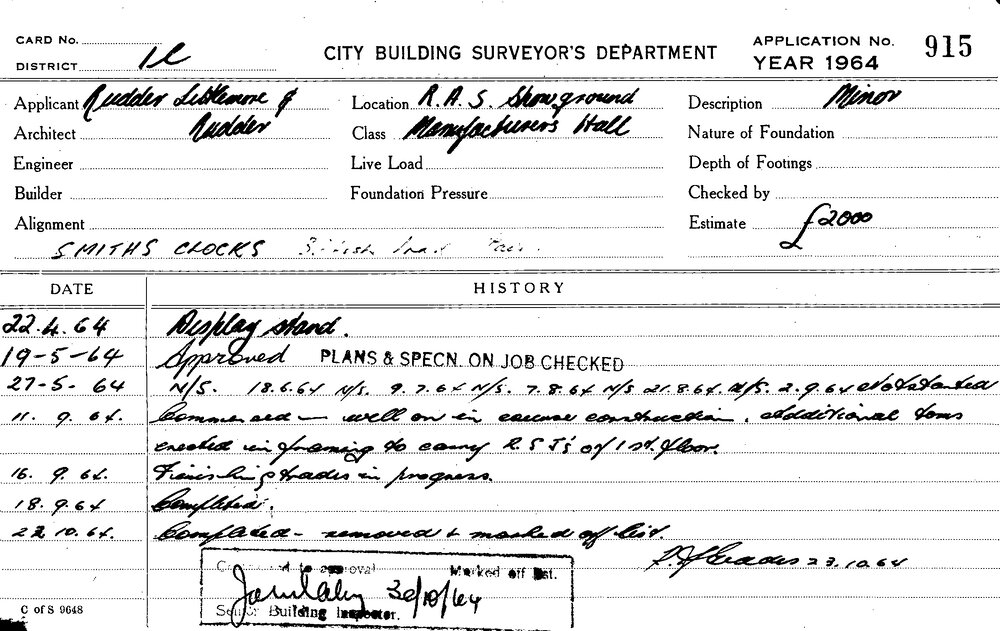 CARD No.
DISTRICT 1C
CITY BUILDING SURVEYOR'S DEPARTMENT
APPLICATION No. 915
YEAR 1964
Applicant Rudder Littlemore &
Architect Rudder
Engineer
Builder
Alignment
SMITHS CLOCKS British Trade Fair.
Location R.A.S. Showground
Class Manufacturers Hall
Live Load
Foundation Pressure
Description Minor
Nature of Foundation
Depth of Footings
Checked by
Estimate £2000
DATE HISTORY
22.4.64 Display stand.
19-5-64 Approved PLANS & SPECN. ON JOB CHECKED
27-5-64 N/S. 18.6.64 N/S. 9.7.64 N/S. 7.8.64 N/S 21.8.64. N/S. 2.9.64 Not started
11. 9. 64. Commenced - well on in course construction. Additional
erected in framing to carry R.S.J's of 1st. floor.
16. 9. 64. Finishing trades in progress.
18. 9. 64 Completed.
22 10. 64. Completed - removed & marked off list.
23.10.64
to approval Marked off list.
30/10/64
Senior Building Inspector.
C of S 9648